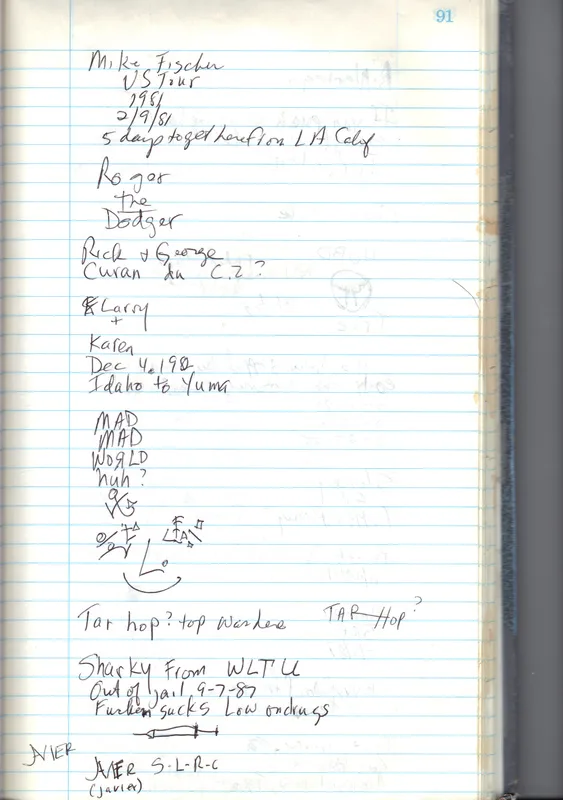 91
Mike Fischer
US Tour
1981
2/9/81
5 days to get here from LA Calif
Roger
the
Dodger
Rick & George
Curan du C.Z ?
Larry
+
Karen
Dec 4, 198
Idaho to Yuma
MAD
MAD
WORLD
huh ?
Tar hop? top TAR Hop?
Sharky From WLTU
Out of jail 9-7-87
sucks Low on drugs
JAVIER
JAVIER S-L-R-C
(javier)